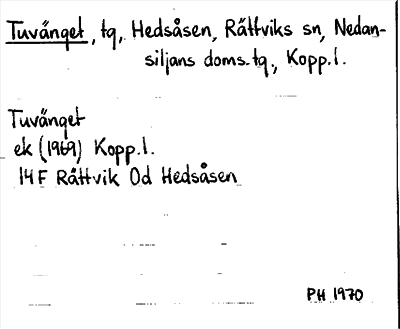 Tuvänget, tg, Hedsåsen, Rättviks sn, Nedan-
siljans doms.tg., Kopp.l.
Tuvänget
ek (1969) Kopp.l.
14 F Rättvik 0d Hedsåsen
PH 1970